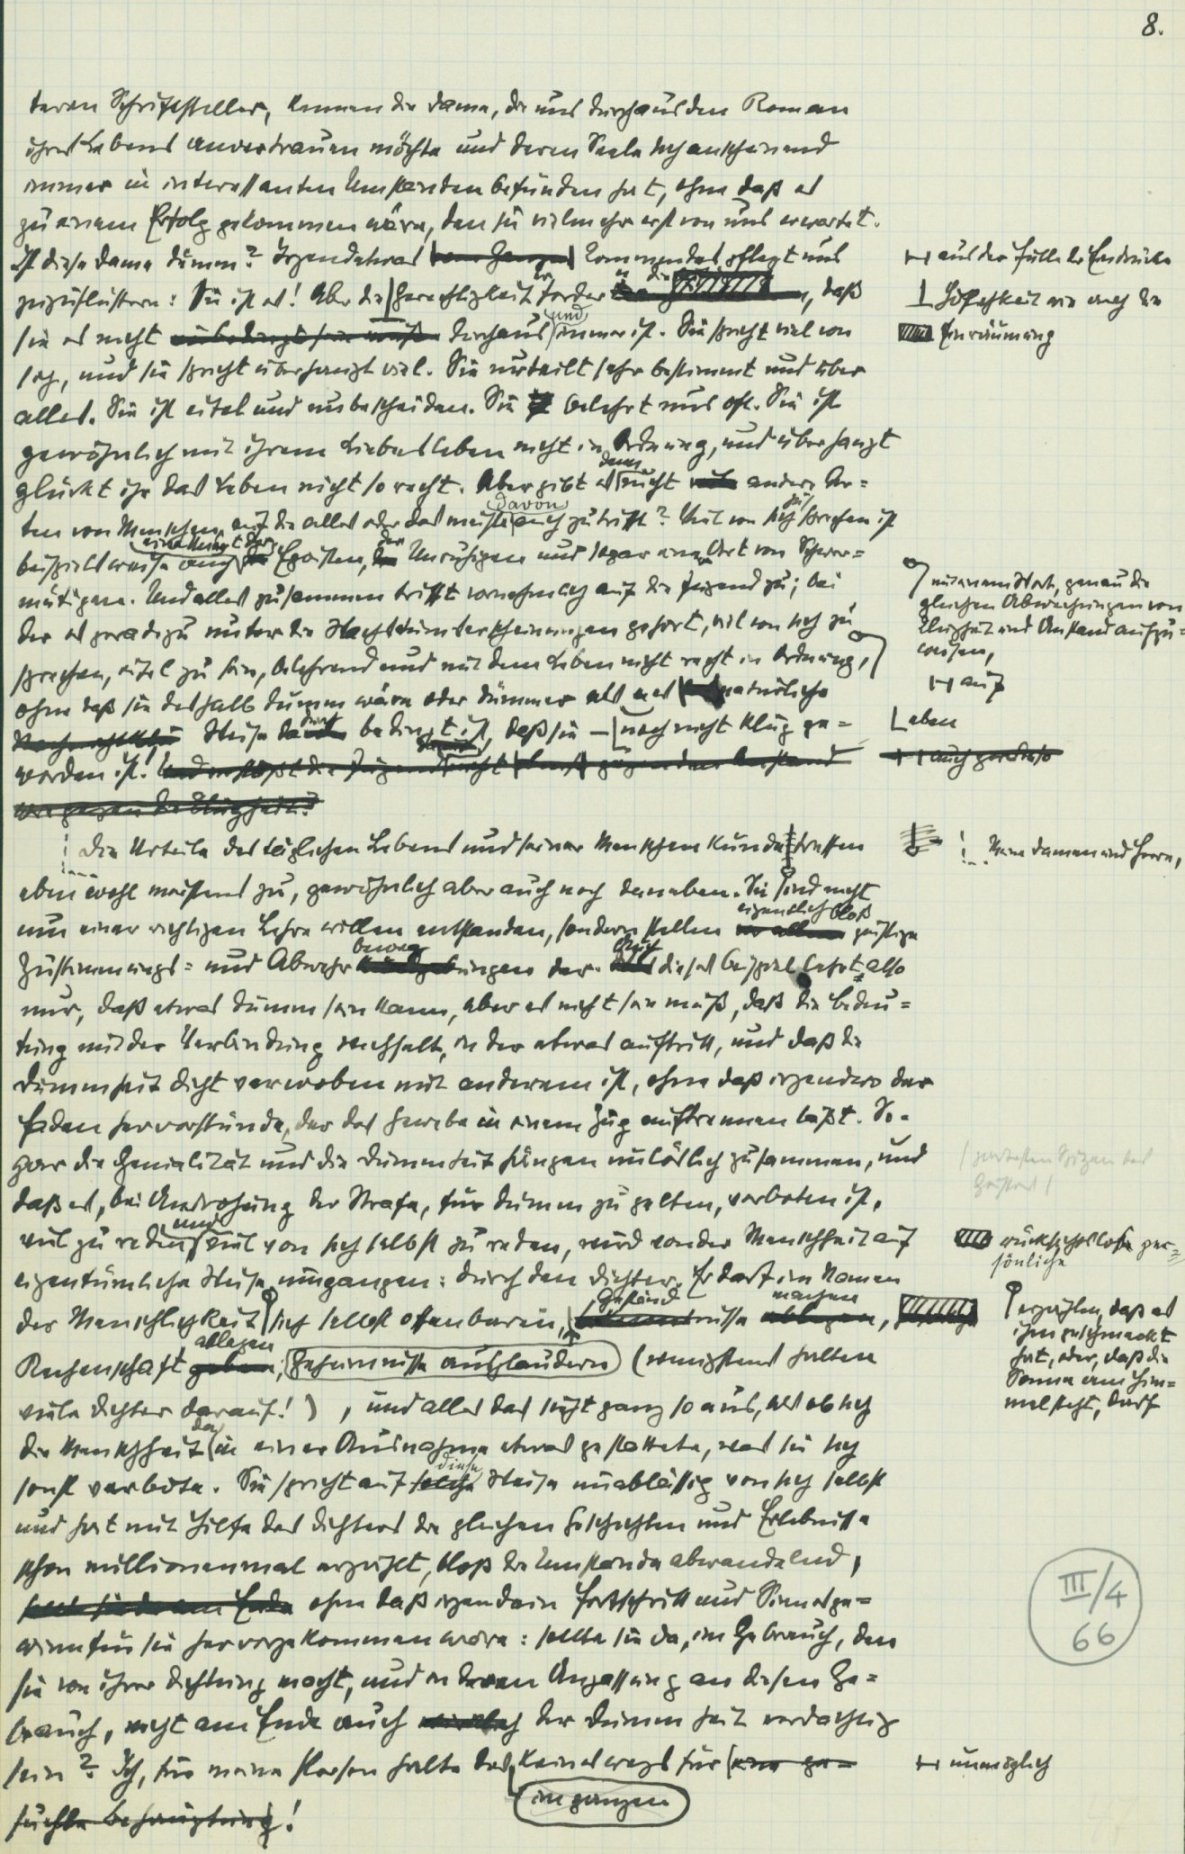 8.
teren Schriftsteller, kennen die Dame, die uns durchaus den Roman
ihres Lebens anvertrauen möchte und deren Seele sich anscheinend
immer in interessanten Umständen befunden hat, ohne daß es
zu einem Erfolg gekommen wäre, den sie vielmehr erst von uns erwartet.
Ist diese Dame dumm? Irgendetwas vom Ganzen Kommendes pflegt uns
aus der Fülle der Eindrücke
zuzuflüstern: Sie ist es! Aber die Gerechtigkeit fordert, daß
Höflichkeit wie auch die
Einräumung
sie es nicht unbedingt sein muß durchaus und immer ist. Sie spricht viel von
sich, und sie spricht überhaupt viel. Sie urteilt sehr bestimmt und über
alles. Sie ist eitel und unbescheiden. Sie belehrt uns oft. Sie ist
gewöhnlich mit ihrem Liebesleben nicht in Ordnung, und überhaupt
glückt ihr das Leben nicht so recht. Aber gibt es denn nicht andere Ar=
ten von Menschen, auf die alles oder das meiste davon auch zutrifft? Viel von sich zu sprechen ist
beispielsweise auch eine Unart der Egoisten, der Unruhigen und sogar einer Art von Schwer=
mütigen. Und alles zusammen trifft vornehmlich auf die Jugend zu; bei
mit einem Wort, genau die
gleichen Abweichungen von
Klugheit und Anstand aufzu=
weisen,
der es geradezu unter die Wachstumserscheinungen gehört, viel von sich zu
sprechen, eitel zu sein, belehrend und mit dem Leben nicht recht in Ordnung,
ohne daß sie deshalb dumm wäre oder dümmer als es auf natürliche
Weise dadurch bedingt ist, daß sie – eben noch nicht klug ge=
worden ist!
Meine Damen und Herrn,
Die Urteile des täglichen Lebens und seiner Menschenkunde treffen
eben wohl meistens zu, gewöhnlich aber auch noch daneben. Sie sind nicht
um einer richtigen Lehre willen entstanden, sondern stellen eigentlich bloß geistige
Zustimmungs= und Abwehrbewegungen dar. Auch dieses Beispiel lehrt also
nur, daß etwas dumm sein kann, aber es nicht sein muß, daß die Bedeu=
tung mit der Verbindung wechselt, in der etwas auftritt, und daß die
Dummheit dicht verwoben mit anderem ist, ohne daß irgendwo der
Faden hervorstünde, der das Gewebe in einem Zug auftrennen läßt. So=
gar die Genialität und die Dummheit hängen unlöslich zusammen, und
daß es, bei Androhung der Strafe, für dumm zu gelten, verboten ist,
viel zu reden und viel von sich selbst zu reden, wird von der Menschheit auf
eigentümliche Weise umgangen: durch den Dichter. Er darf im Namen
der Menschlichkeit
erzählen, daß es
ihm geschmeckt
hat, oder, daß die
Sonne am Him=
mel steht, darf
sich selbst offenbaren, Geständnisse machen,
rücksichtslose per=
sönliche
Rechenschaft ablegen, Geheimnisse ausplaudern (wenigstens halten
viele Dichter darauf!), und alles das sieht ganz so aus, als ob sich
die Menschheit da in einer Ausnahme etwas gestattete, was sie sich
sonst verböte. Sie spricht auf diese Weise unablässig von sich selbst
und hat mit Hilfe des Dichters die gleichen Geschichten und Erlebnisse
schon millionenmal erzählt, bloß die Umstände abwandelnd,
ohne daß irgendein Fortschritt und Sinnesge=
winn für sie hervorgekommen wäre: sollte sie da, im Gebrauch, den
sie von ihrer Dichtung macht, und in deren Anpassung an diesen Ge=
brauch, nicht am Ende auch der Dummheit verdächtig
sein? Ich, für meine Person halte das keineswegs für eine ge=
unmöglich
im ganzen
suchte Behauptung!
III/4
66